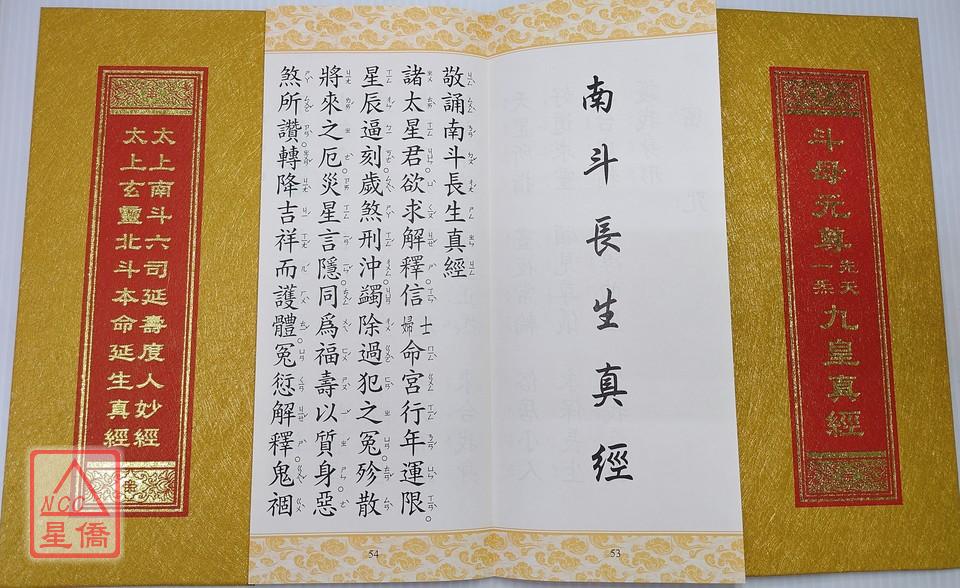 斗母元尊先天一炁九皇真經
南斗長生真經
53
敬誦南斗長生真經
諸太星君。欲求解釋信士婦命宮行年運限。
星辰逼刻歲煞刑沖。蠲除過犯之冤殄散
將來之厄。災星言隱。同爲福壽以質身。惡
煞所讚。轉降吉祥而護體。冤愆解釋鬼祻
54
太上南斗六司延壽度人妙經
太上玄靈北斗本命延生真經
NCC
星僑